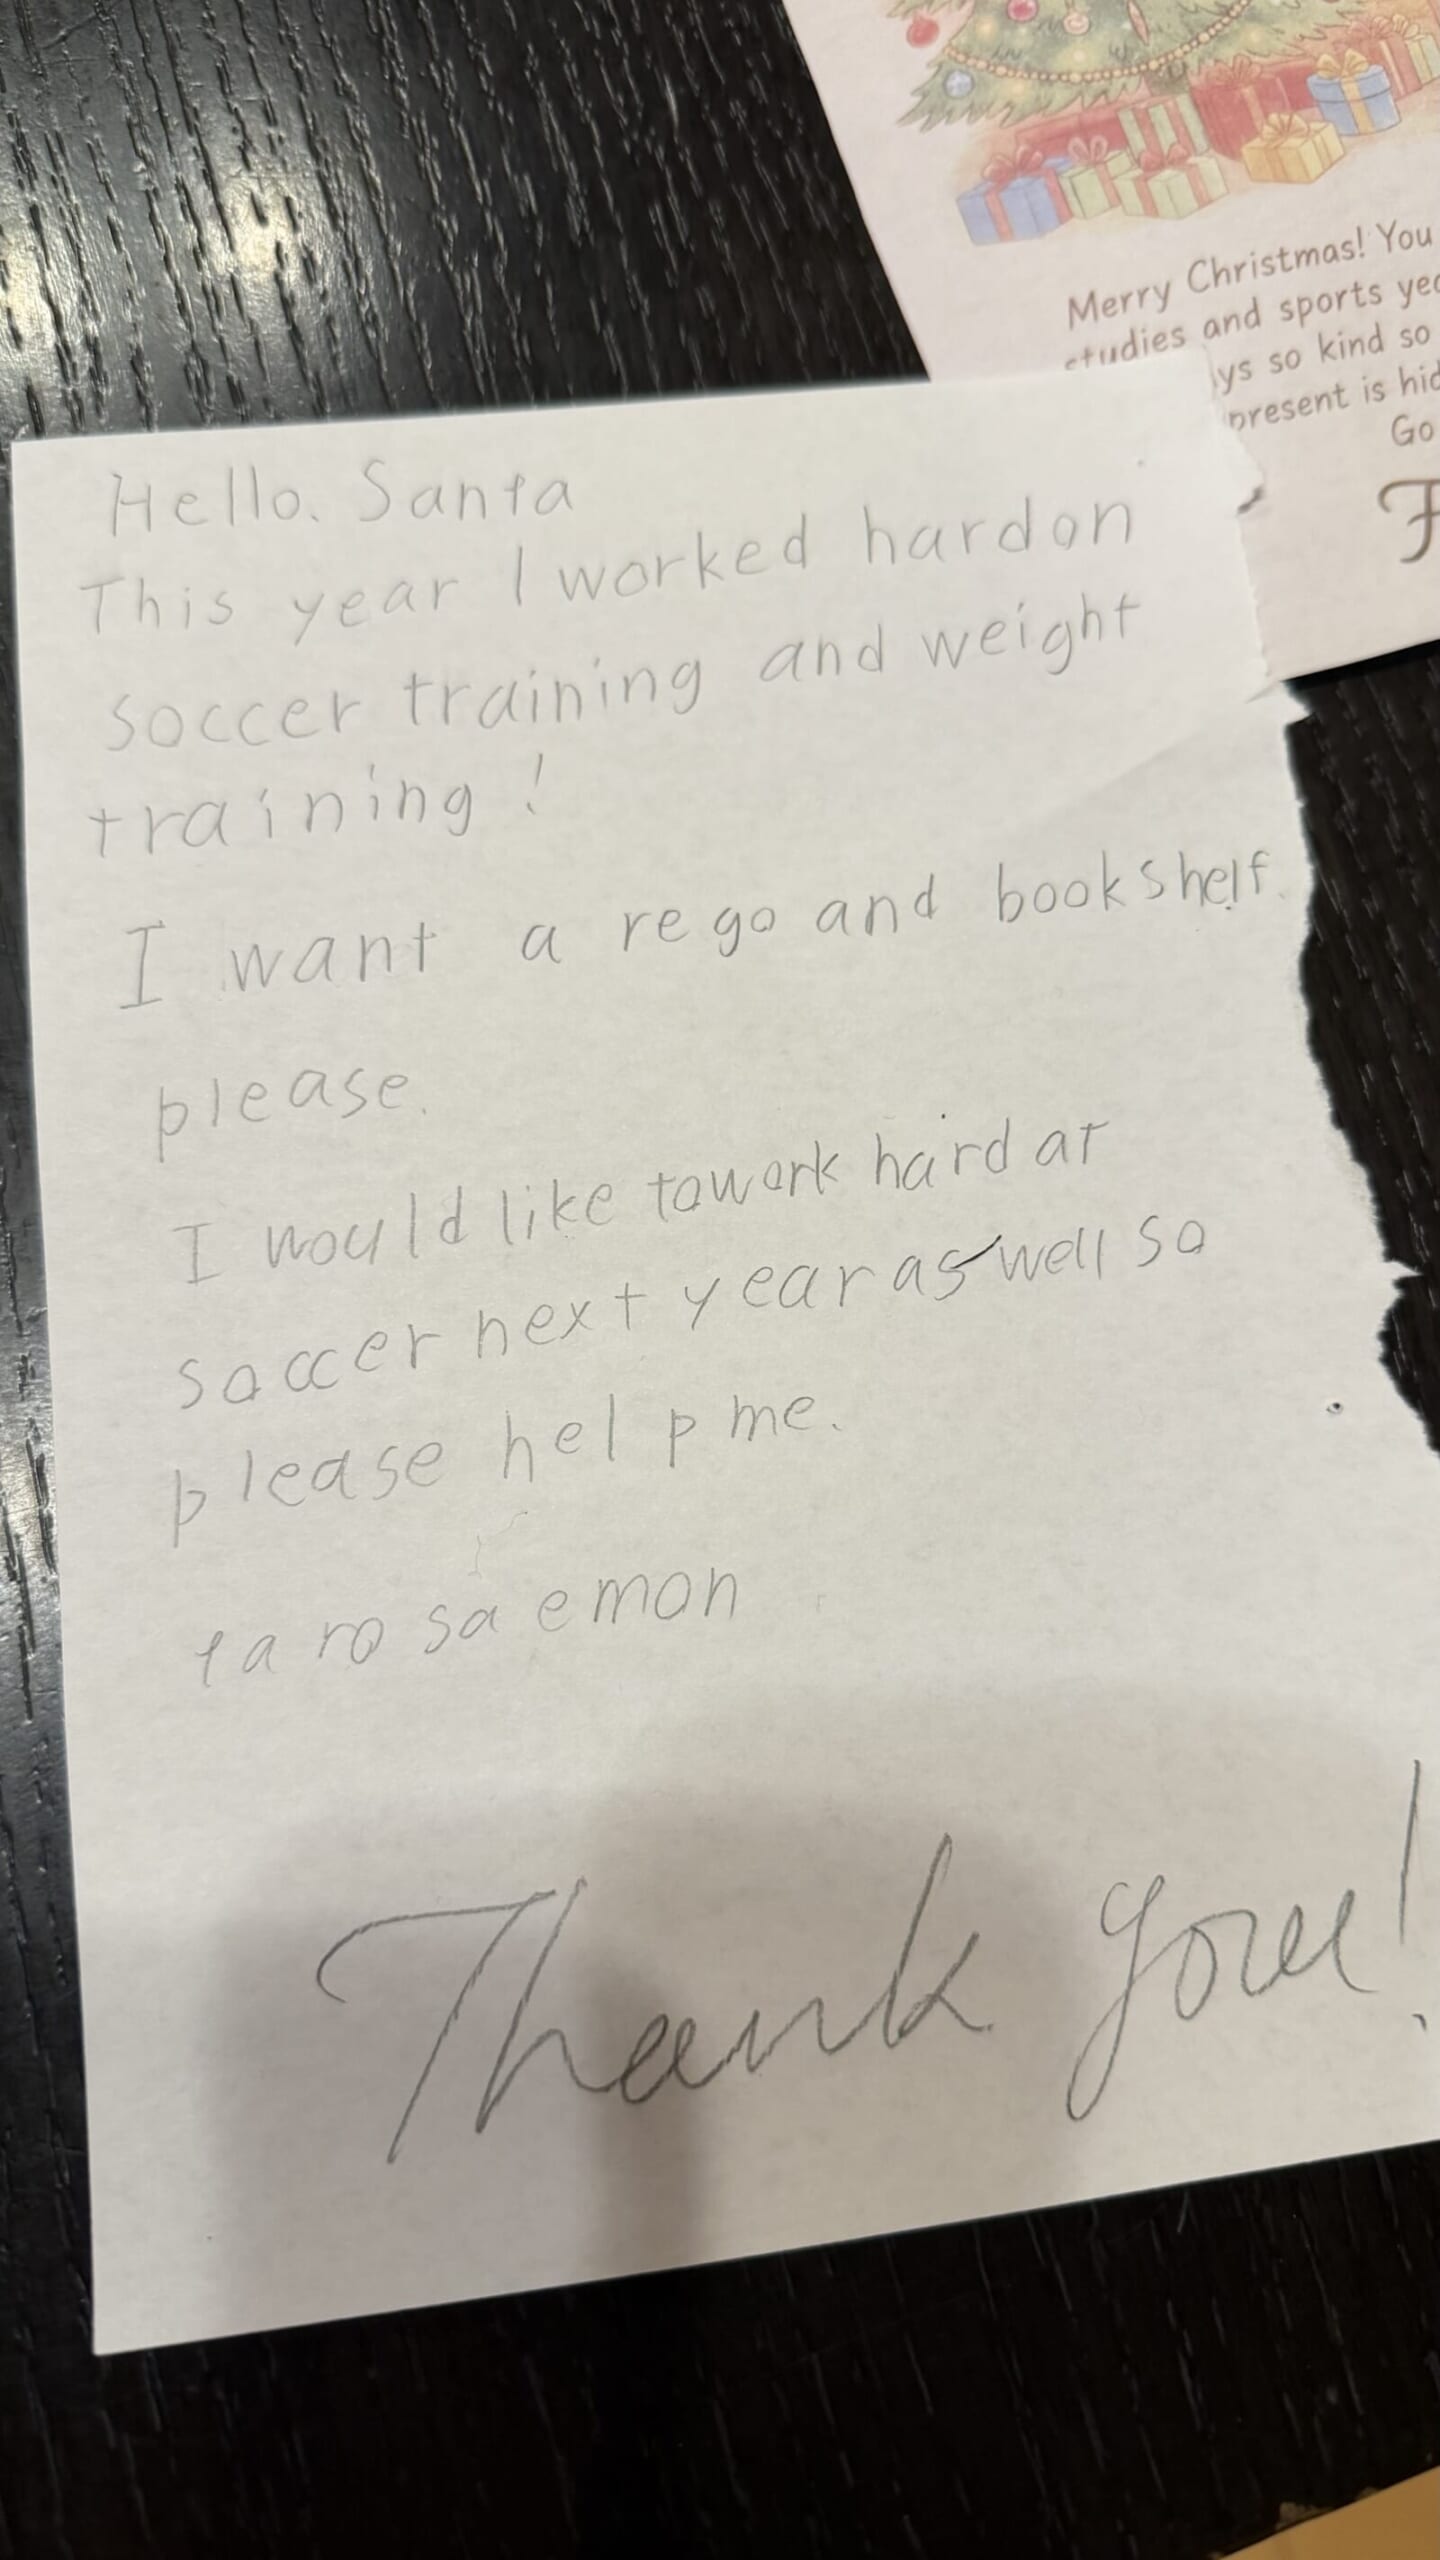 Merry Christmas! You
studies and sports
so kind so
present is
Go
Hello. Santa
This year I worked hard on
soccer training and weight
training!
I want a rego and bookshelf.
please.
I would like to work hard at
soccer next year as well so
please help me.
taro saemon
Thank you!